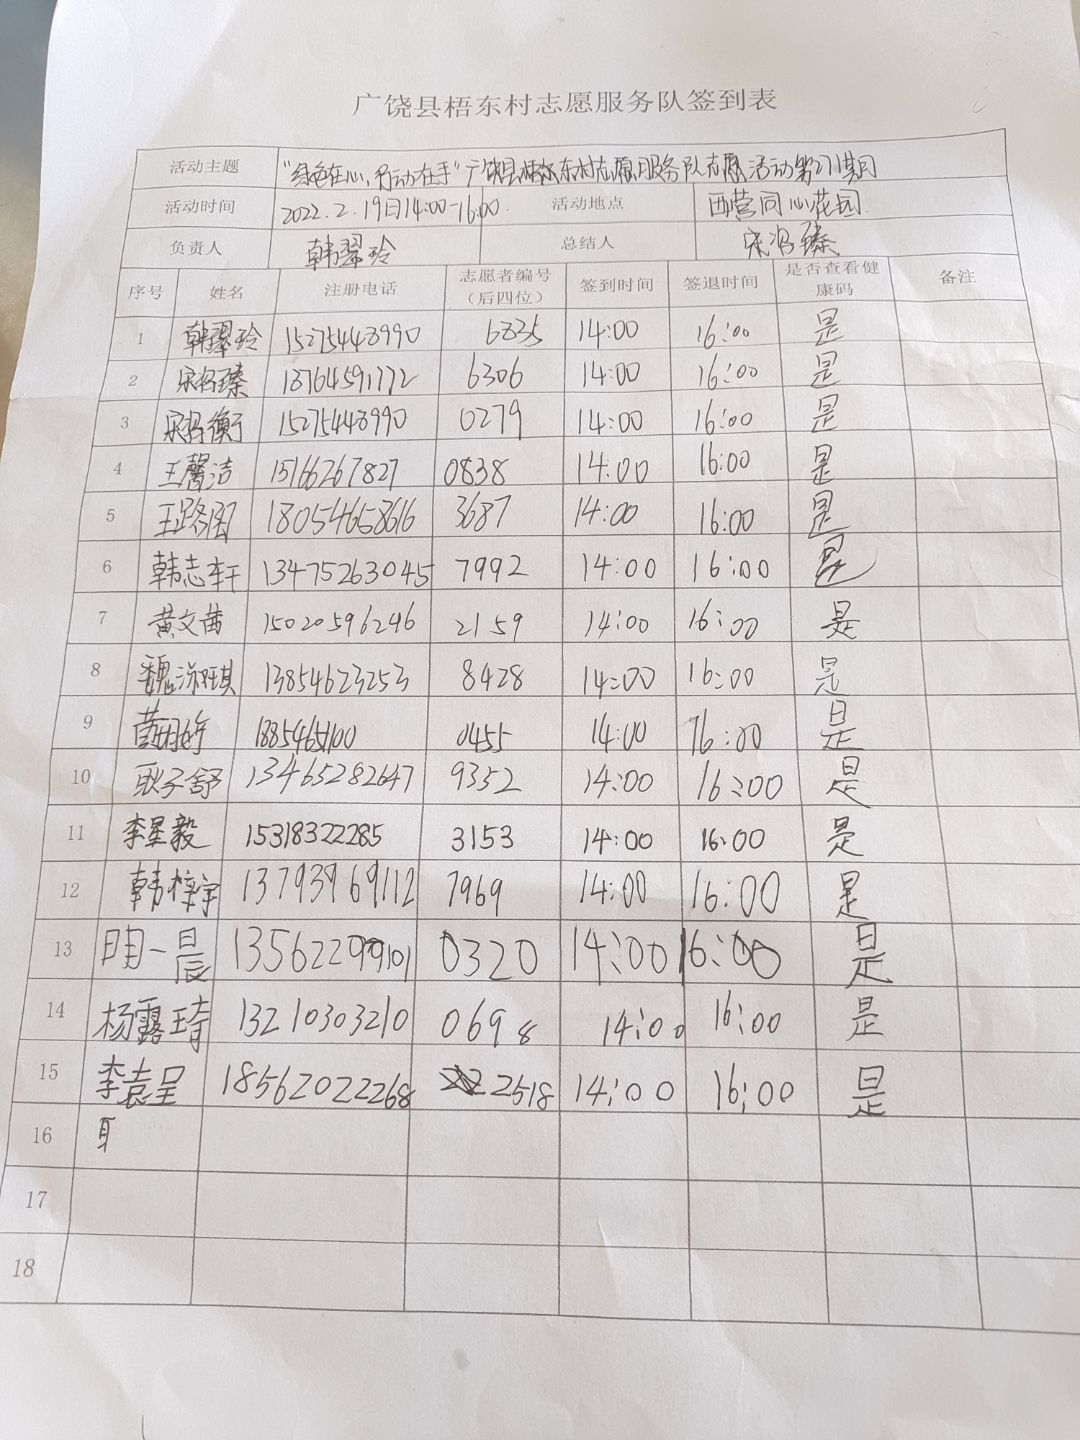 广饶县梧东村志愿服务队签到表
活动主题 "绿色在心,行动在手"广饶县梧东村志愿服务队志愿活动第271期
活动时间 2022.2.19日14:00-16:00. 活动地点 西营同心花园.
负责人 韩翠玲 总结人
序号 姓名 注册电话 志愿者编号(后四位) 签到时间 签退时间 是否查看健康码 备注
1 韩翠玲 15275448990 6835 14:00 16:00 是
2 18764591772 6306 14:00 16:00 是
3 15275448990 0279 14:00 16:00 是
4 王馨洁 15166267827 0838 14:00 16:00 是
5 王路阁 18054658616 3687 14:00 16:00 是
6 韩志轩 13475263045 7992 14:00 16:00 是
7 黄文茜 15020596246 2159 14:00 16:00 是
8 13854623253 8428 14:00 16:00 是
9 18854651100 0455 14:00 16:00 是
10 耿子舒 13465282647 9352 14:00 16:00 是
11 李星毅 15318322285 3153 14:00 16:00 是
12 韩梓宇 13793969112 7969 14:00 16:00 是
13 明一晨 13562299101 0320 14:00 16:00 是
14 杨露琦 13210303210 0698 14:00 16:00 是
15 李袁呈 18562022268 2518 14:00 16:00 是
16
17
18